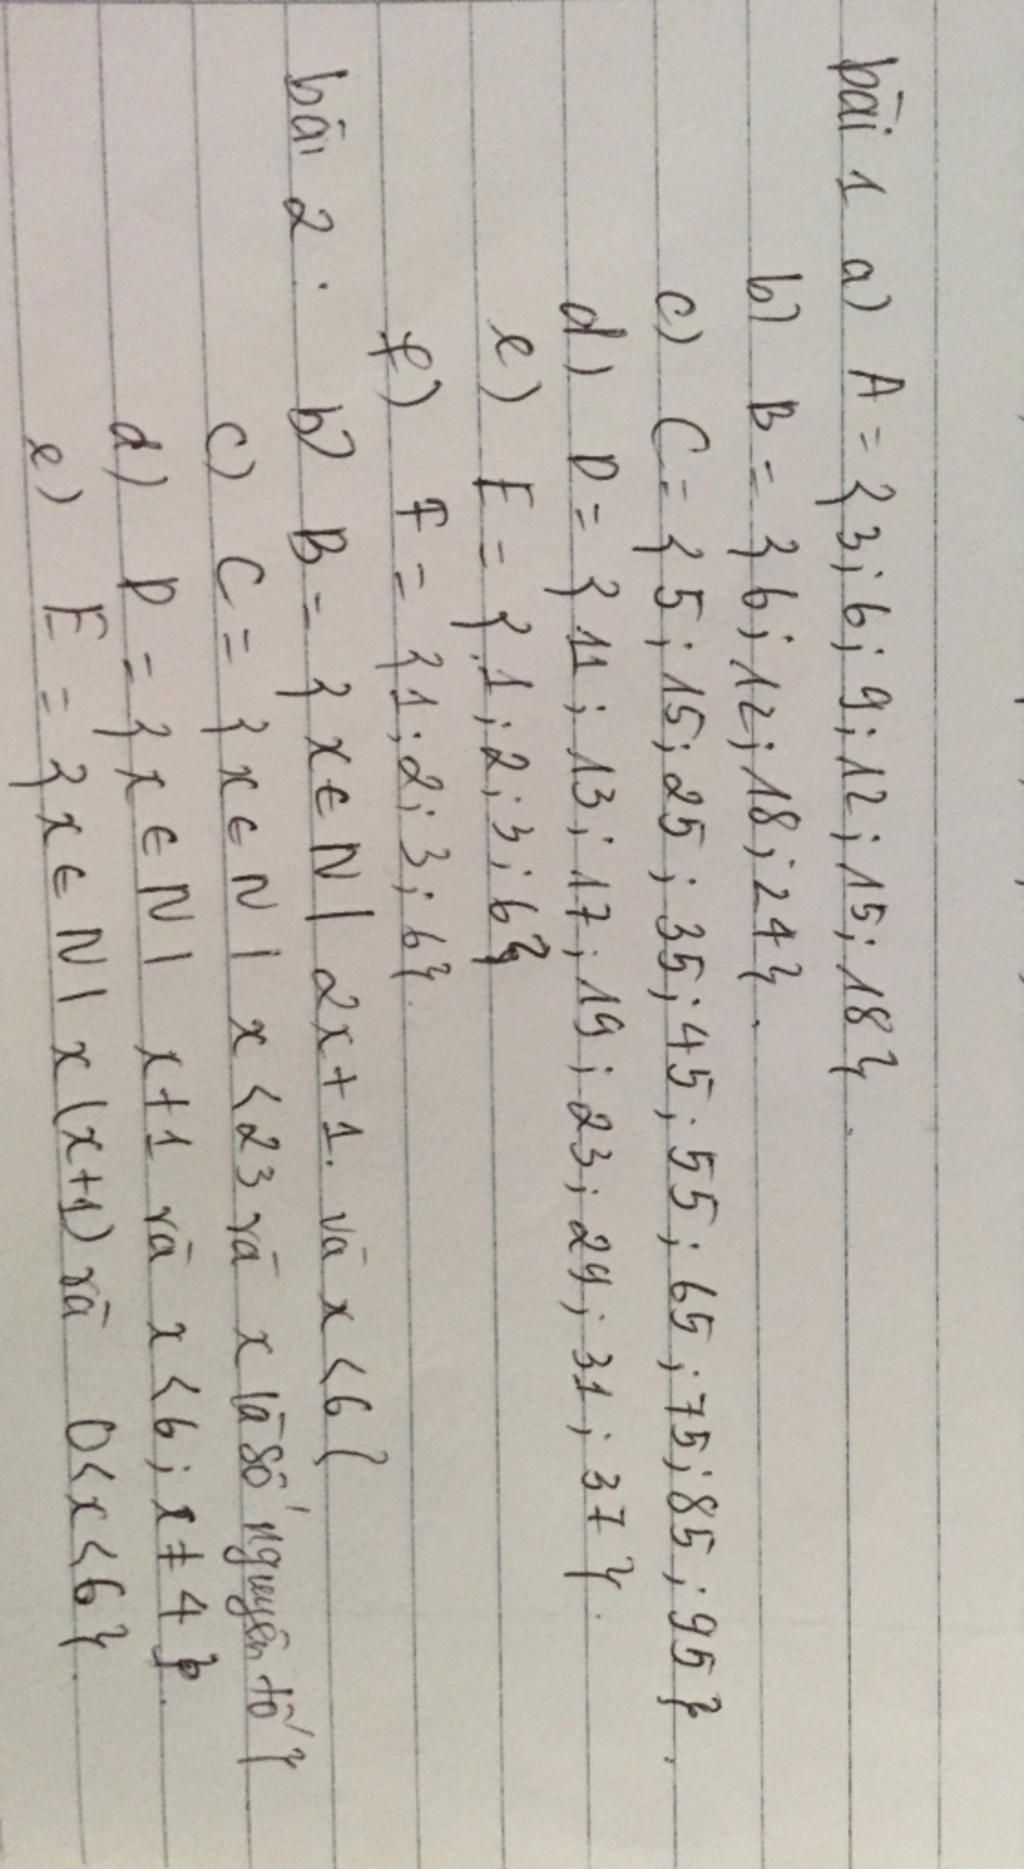 bài 1 a) A = {3; 6; 9; 12; 15; 18}.
b) B = {6; 12; 18; 24}.
c) C = {5; 15; 25; 35; 45; 55; 65; 75; 85; 95}.
d) D = {11; 13; 17; 19; 23; 29; 31; 37}.
e) E = {1; 2; 3; 6}
f) F = {1; 2; 3; 6}.
bài 2: b) B = {x ∈ N | 2x+1. và x < 6}
c) C = {x ∈ N | x < 23 và x là số nguyên tố}
d) D = {x ∈ N | x+1 và x < 6; x ≠ 4}.
e) E = {x ∈ N | x(x+1) và 0 < x < 6}.